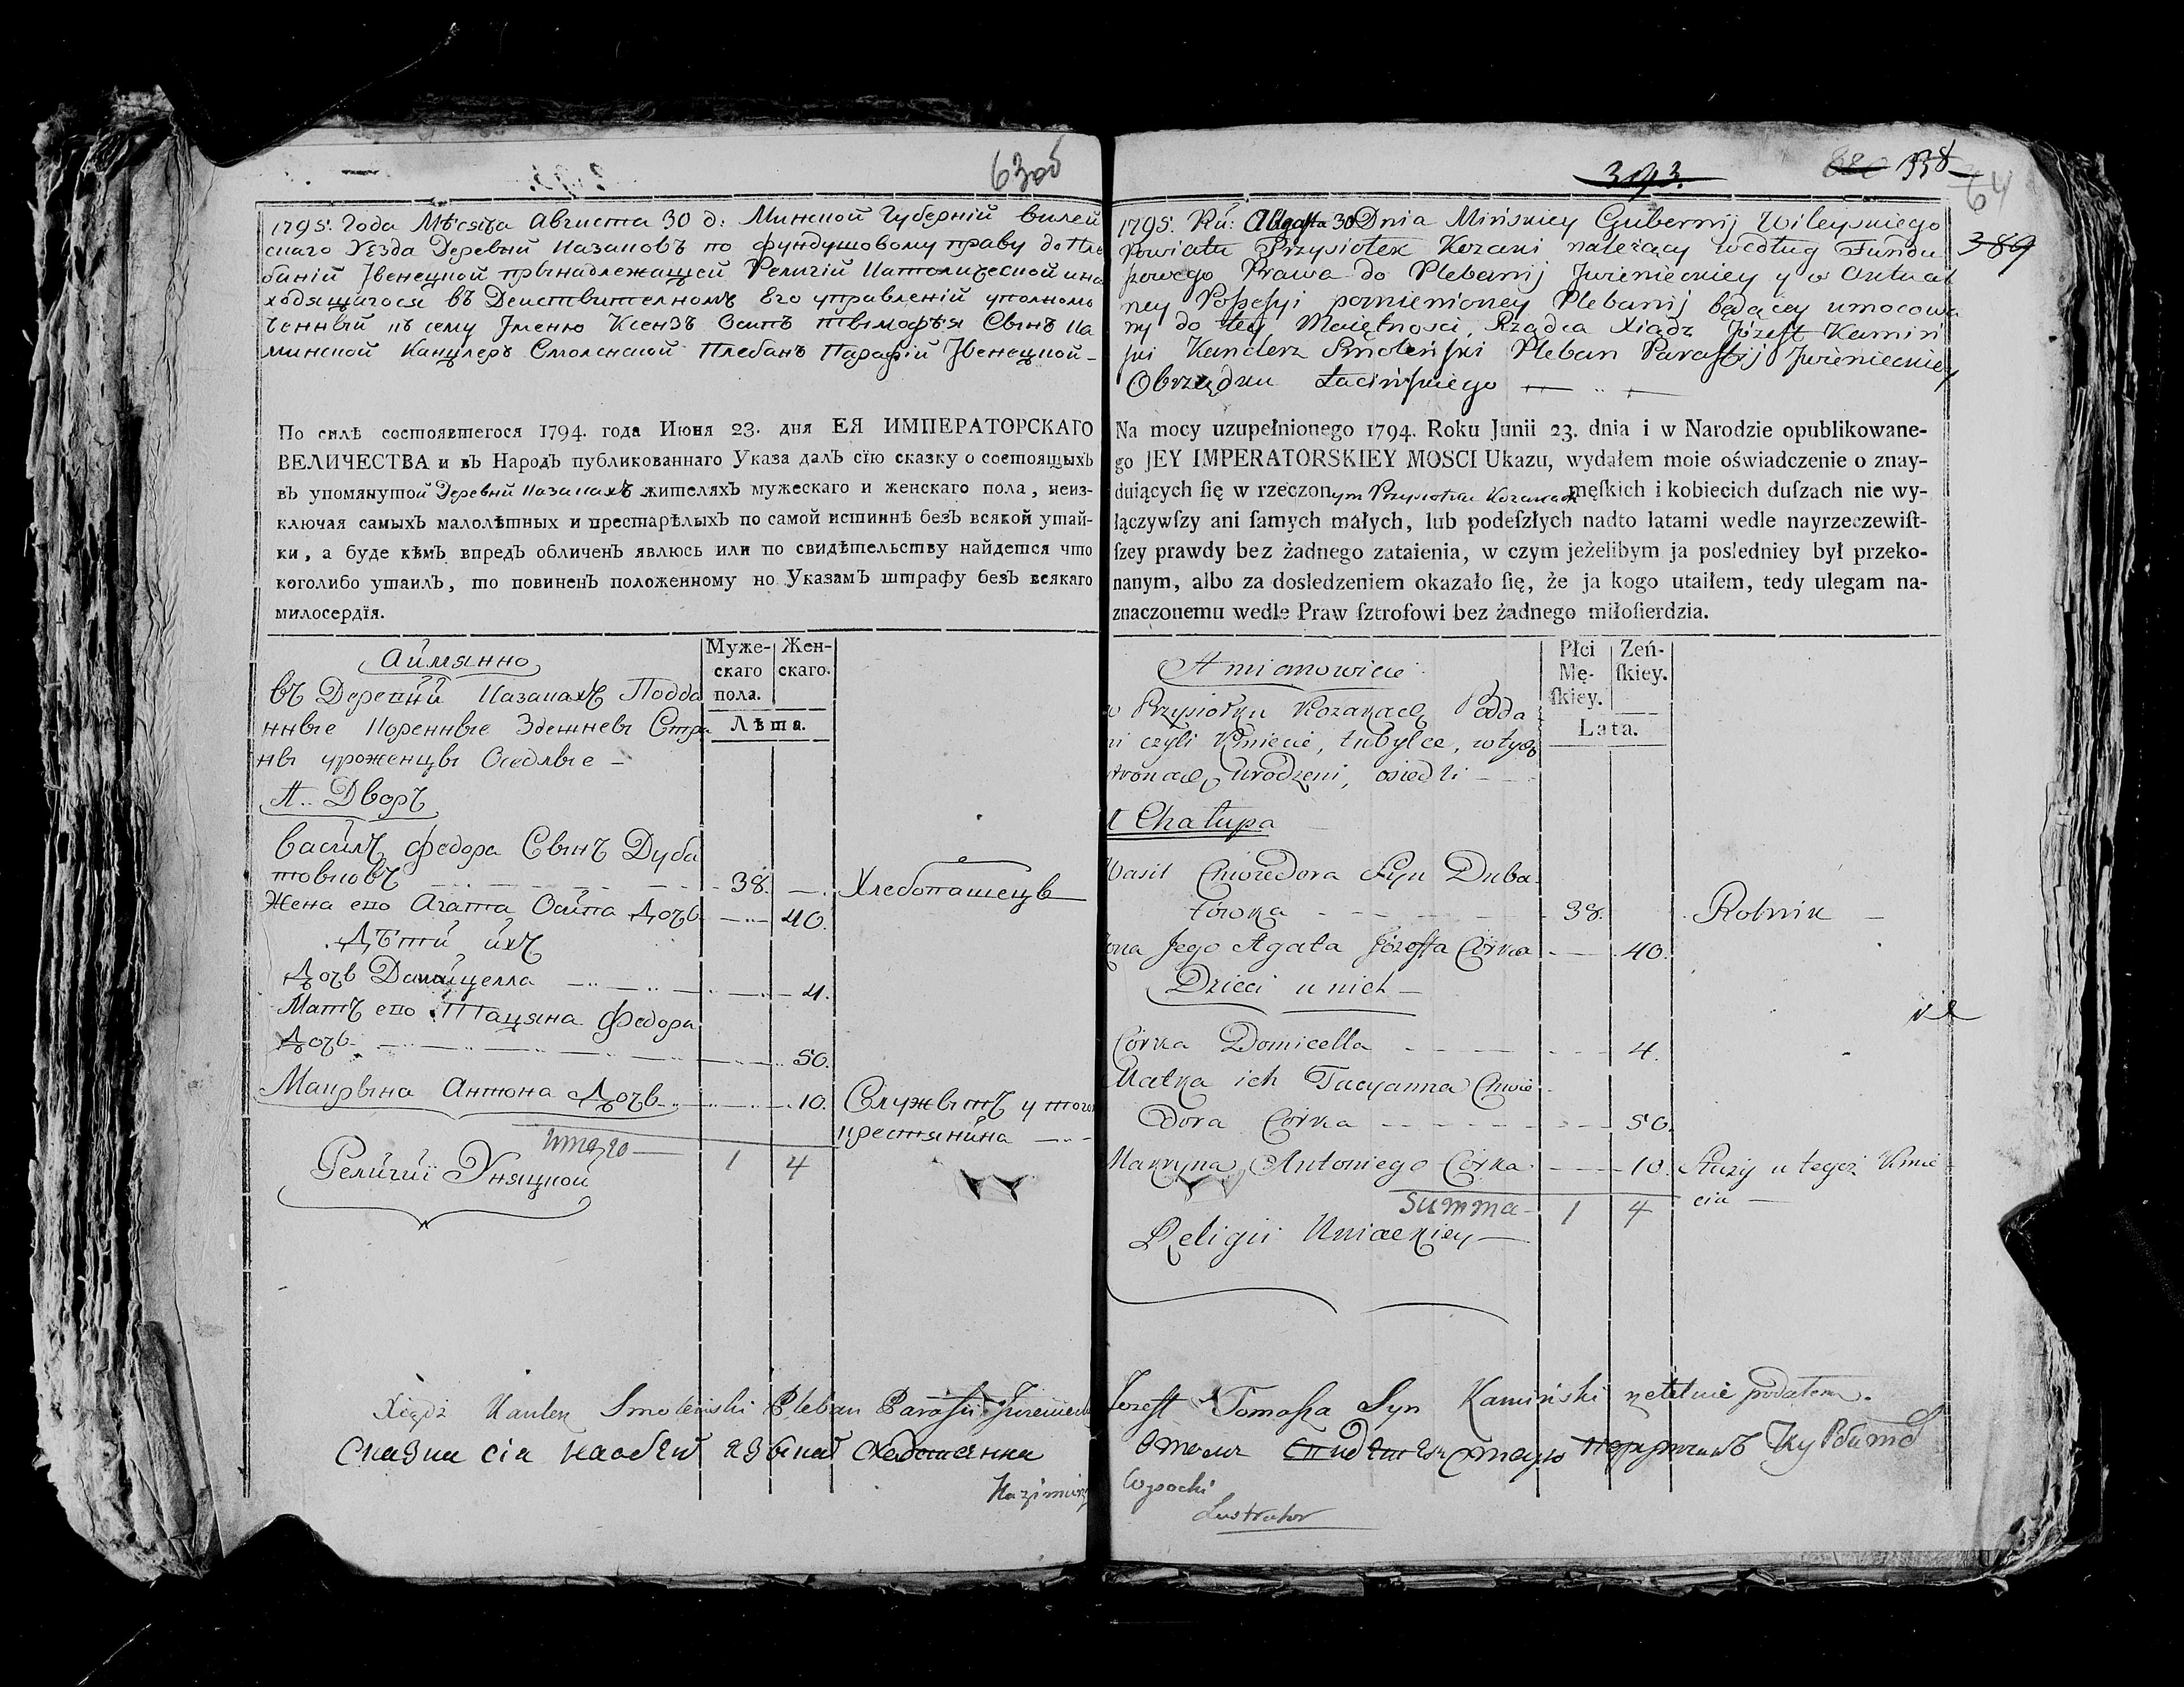 63об
1795. Года Мѣсяца Августа 30 д: Минской Губерній Вилей
скаго Уѣзда Деревни Казаковъ по фундушовому праву до Пле
баніи Ивенецкой принадлежащей Религіи Католической и на
ходящагося въ Действителномъ Его управленій уполномо
ченный къ сему Іменю Ксензъ Осипъ Сынъ Ка
минской Канцлеръ Смоленской Плебанъ Парафій Ивенецкой
По силѣ состоявшегося 1794. года Июня 23. дня ЕЯ ИМПЕРАТОРСКАГО
ВЕЛИЧЕСТВА и въ Народъ публикованнаго Указа далъ сїю сказку о состоящыхъ
въ упомянутой Деревни Казакахъ жителяхъ мужескаго и женскаго пола, неиз-
ключая самыхъ малолѣтных и престарѣлыхъ по самой истиннѣ безъ всякой утай-
ки, а буде кѣмъ впредъ обличенъ явлюсь или по свидѣтельству найдется что
коголибо утаилъ, то повиненъ положенному по Указамъ штрафу безъ всякаго
милосердїя.
Аймянно
Муже-
скаго
пола.
Жен-
скаго.
Лѣта.
въ Деревни Казакахъ Подда
нные Коренные Здешневы Стра
ны уроженцы Оседлые —
А.. Дворъ
Василъ Федора Сынъ Дуба
товковъ 38. Хлебопашецъ
Жена его Агата Осипа Дочь 40.
Дѣти ихъ
Дочь Домицелла 4.
Мать его Тацяна Федора
Дочь 50.
Макрына Антона Дочь 10. Служытъ у того
крестянина
итаго 1 4
Религіи Уняцкой
Xiądz Kancler Smoleński Pleban Parafii Iwienieck
Сказки сіа
Kazimierz
393.
338
64
389
1795. Ru: Augusta 30 Dnia Mińskiey Gubernij Wileyskiego
Powiatu Przysiołek Kozaki należący według Fundu
szowego Prawa do Plebanij Jwienieckiey y w Aktual
ney Possessyi pomienioney Plebanij będącey umocowa
ny do tey Maiętnosci, Rządca Xiądz Józeff Kamiń
ski Kanclerz Smoleński Pleban Paraffij Jwienieckiey
Obrządku Łacińskiego
Na mocy uzupełnionego 1794. Roku Junii 23. dnia i w Narodzie opublikowane-
go JEY IMPERATORSKIEY MOSCI Ukazu, wydałem moie oświadczenie o znay-
duiących ſię w rzeczonym Przysiołku Kozakach męſkich i kobiecich duſzach nie wy-
łączywſzy ani ſamych małych, lub podeſzłych nadto latami wedle nayrzeczewiſt-
ſzey prawdy bez żadnego zataienia, w czym jeżelibym ja posledniey był przeko-
nanym, albo za dosledzeniem okazało ſię, że ja kogo utaiłem, tedy ulegam na-
znaczonemu wedle Praw ſztrofowi bez żadnego miłoſierdzia.
A mianowicie
Płci
Mę-
ſkiey.
Zeń-
ſkiey.
Lata.
w Przysiołku Kozakach Podda
ni czyli Kmiecie, tubylce, w tych
stronach urodzeni, osiedli
1 Chałupa
Wasil Chwiedora Syn Duba-
towka 38. Rolnik
ona Jego Agata Józeffa Córka 40.
Dzieci u nich
Córka Domicella 4.
Matka ich Tacyanna Chwie
dora Córka 50.
Makryna Antoniego Córka 10. Służy u tegoż Kmie
cia
Summa 1 4
Religii Uniackiey
Jozeff Tomasza Syn Kamiński rzetelnie podałem.
Wysocki
Lustrator